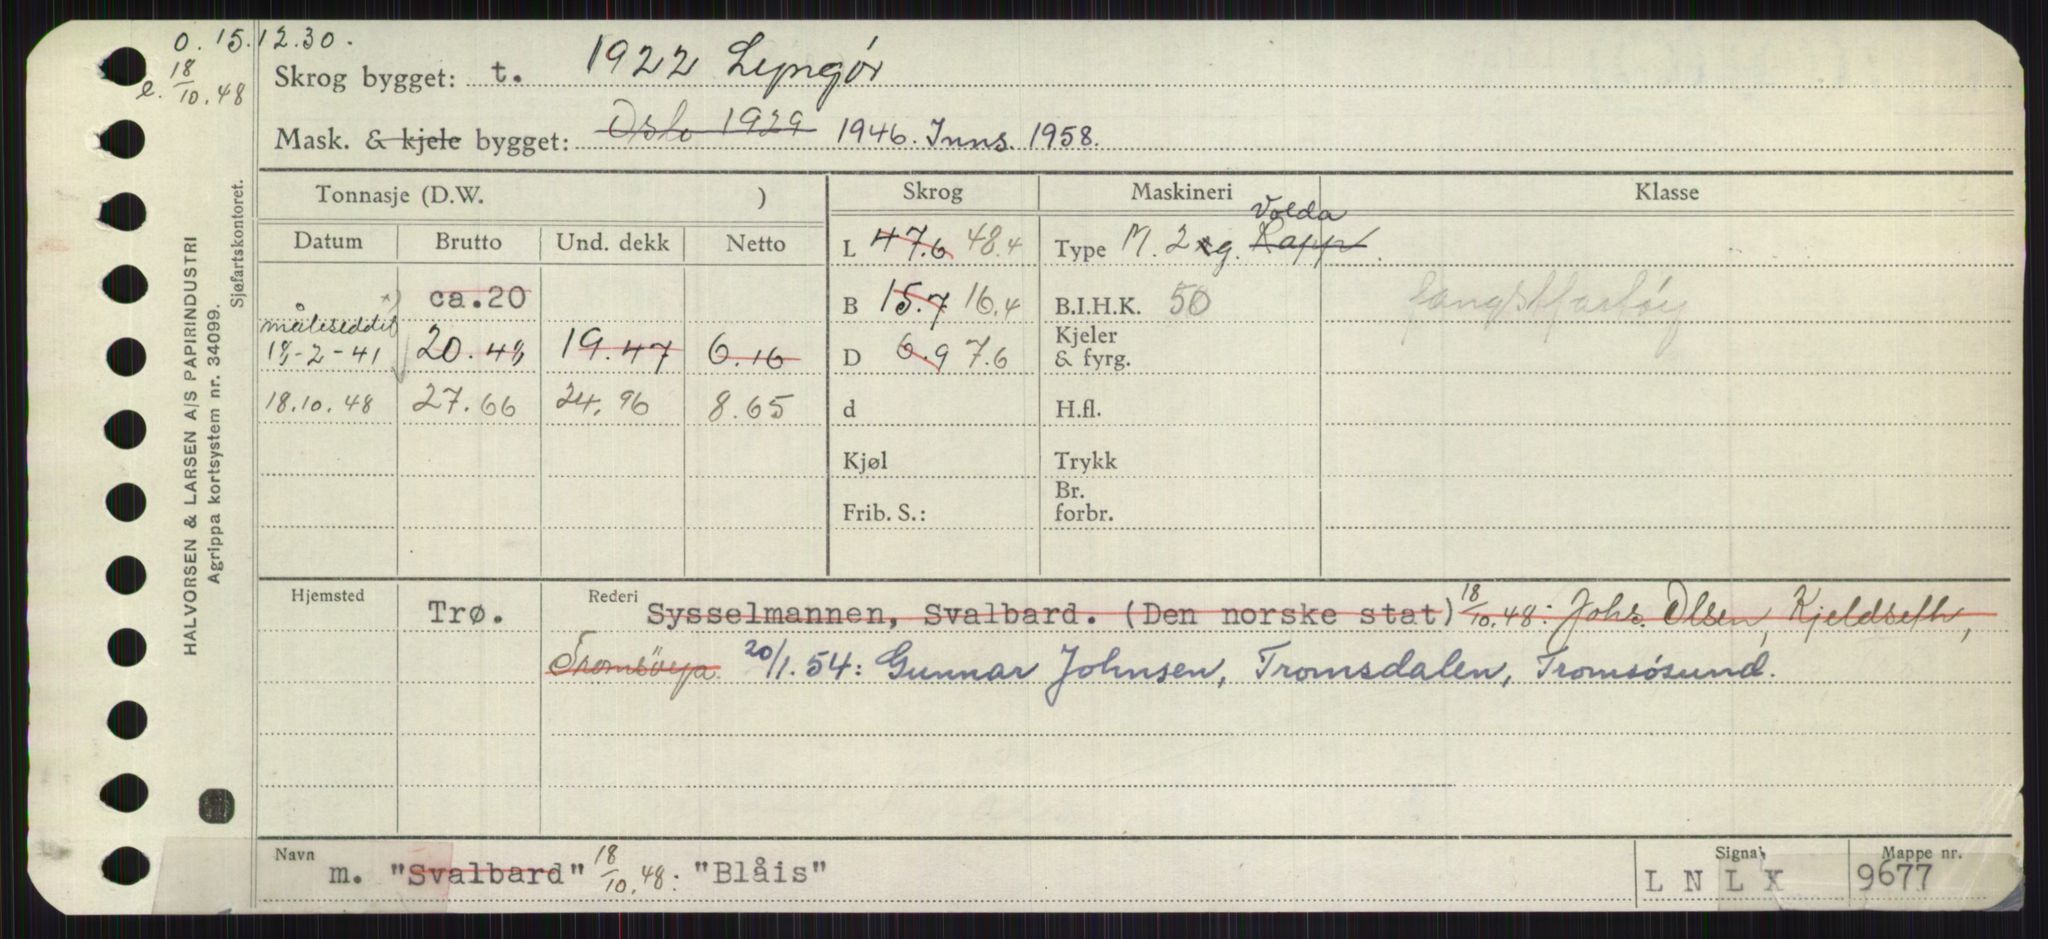 O. 15.12.30.
e. 18/10.48
Skrog bygget: t. 1922 Lyngör
Mask. & kjele bygget: Oslo 1929 1946. Inns. 1958.
Tonnasje (D.W. ) Skrog Maskineri Klasse
Datum Brutto Und. dekk Netto L 47.6 48.4 Type M. 2 g. Rapp Volda
ca. 20 B 15.7 16.4 B.I.H.K. 50 fangstfartøy
måleseddel
18-2-41 20.48 19.47 6.16 D 6.9 7.6 Kjeler & fyrg.
18.10.48 27.66 24.96 8.65 d H.fl.
Kjøl Trykk
Frib. S.: Br. forbr.
Hjemsted Trø. Rederi Sysselmannen, Svalbard. (Den norske stat) 18/10.48: Johs. Olsen, Kjeldseth,
Tromsöya. 20/1.54: Gunnar Johnsen, Tromsdalen, Tromsøsund.
Navn m. "Svalbard" 18/10.48: "Blåis" Signal L N L X Mappe nr. 9677
HALVORSEN & LARSEN A/S PAPIRINDUSTRI
Agrippa kortsystem nr. 34099.
Sjøfartskontoret.